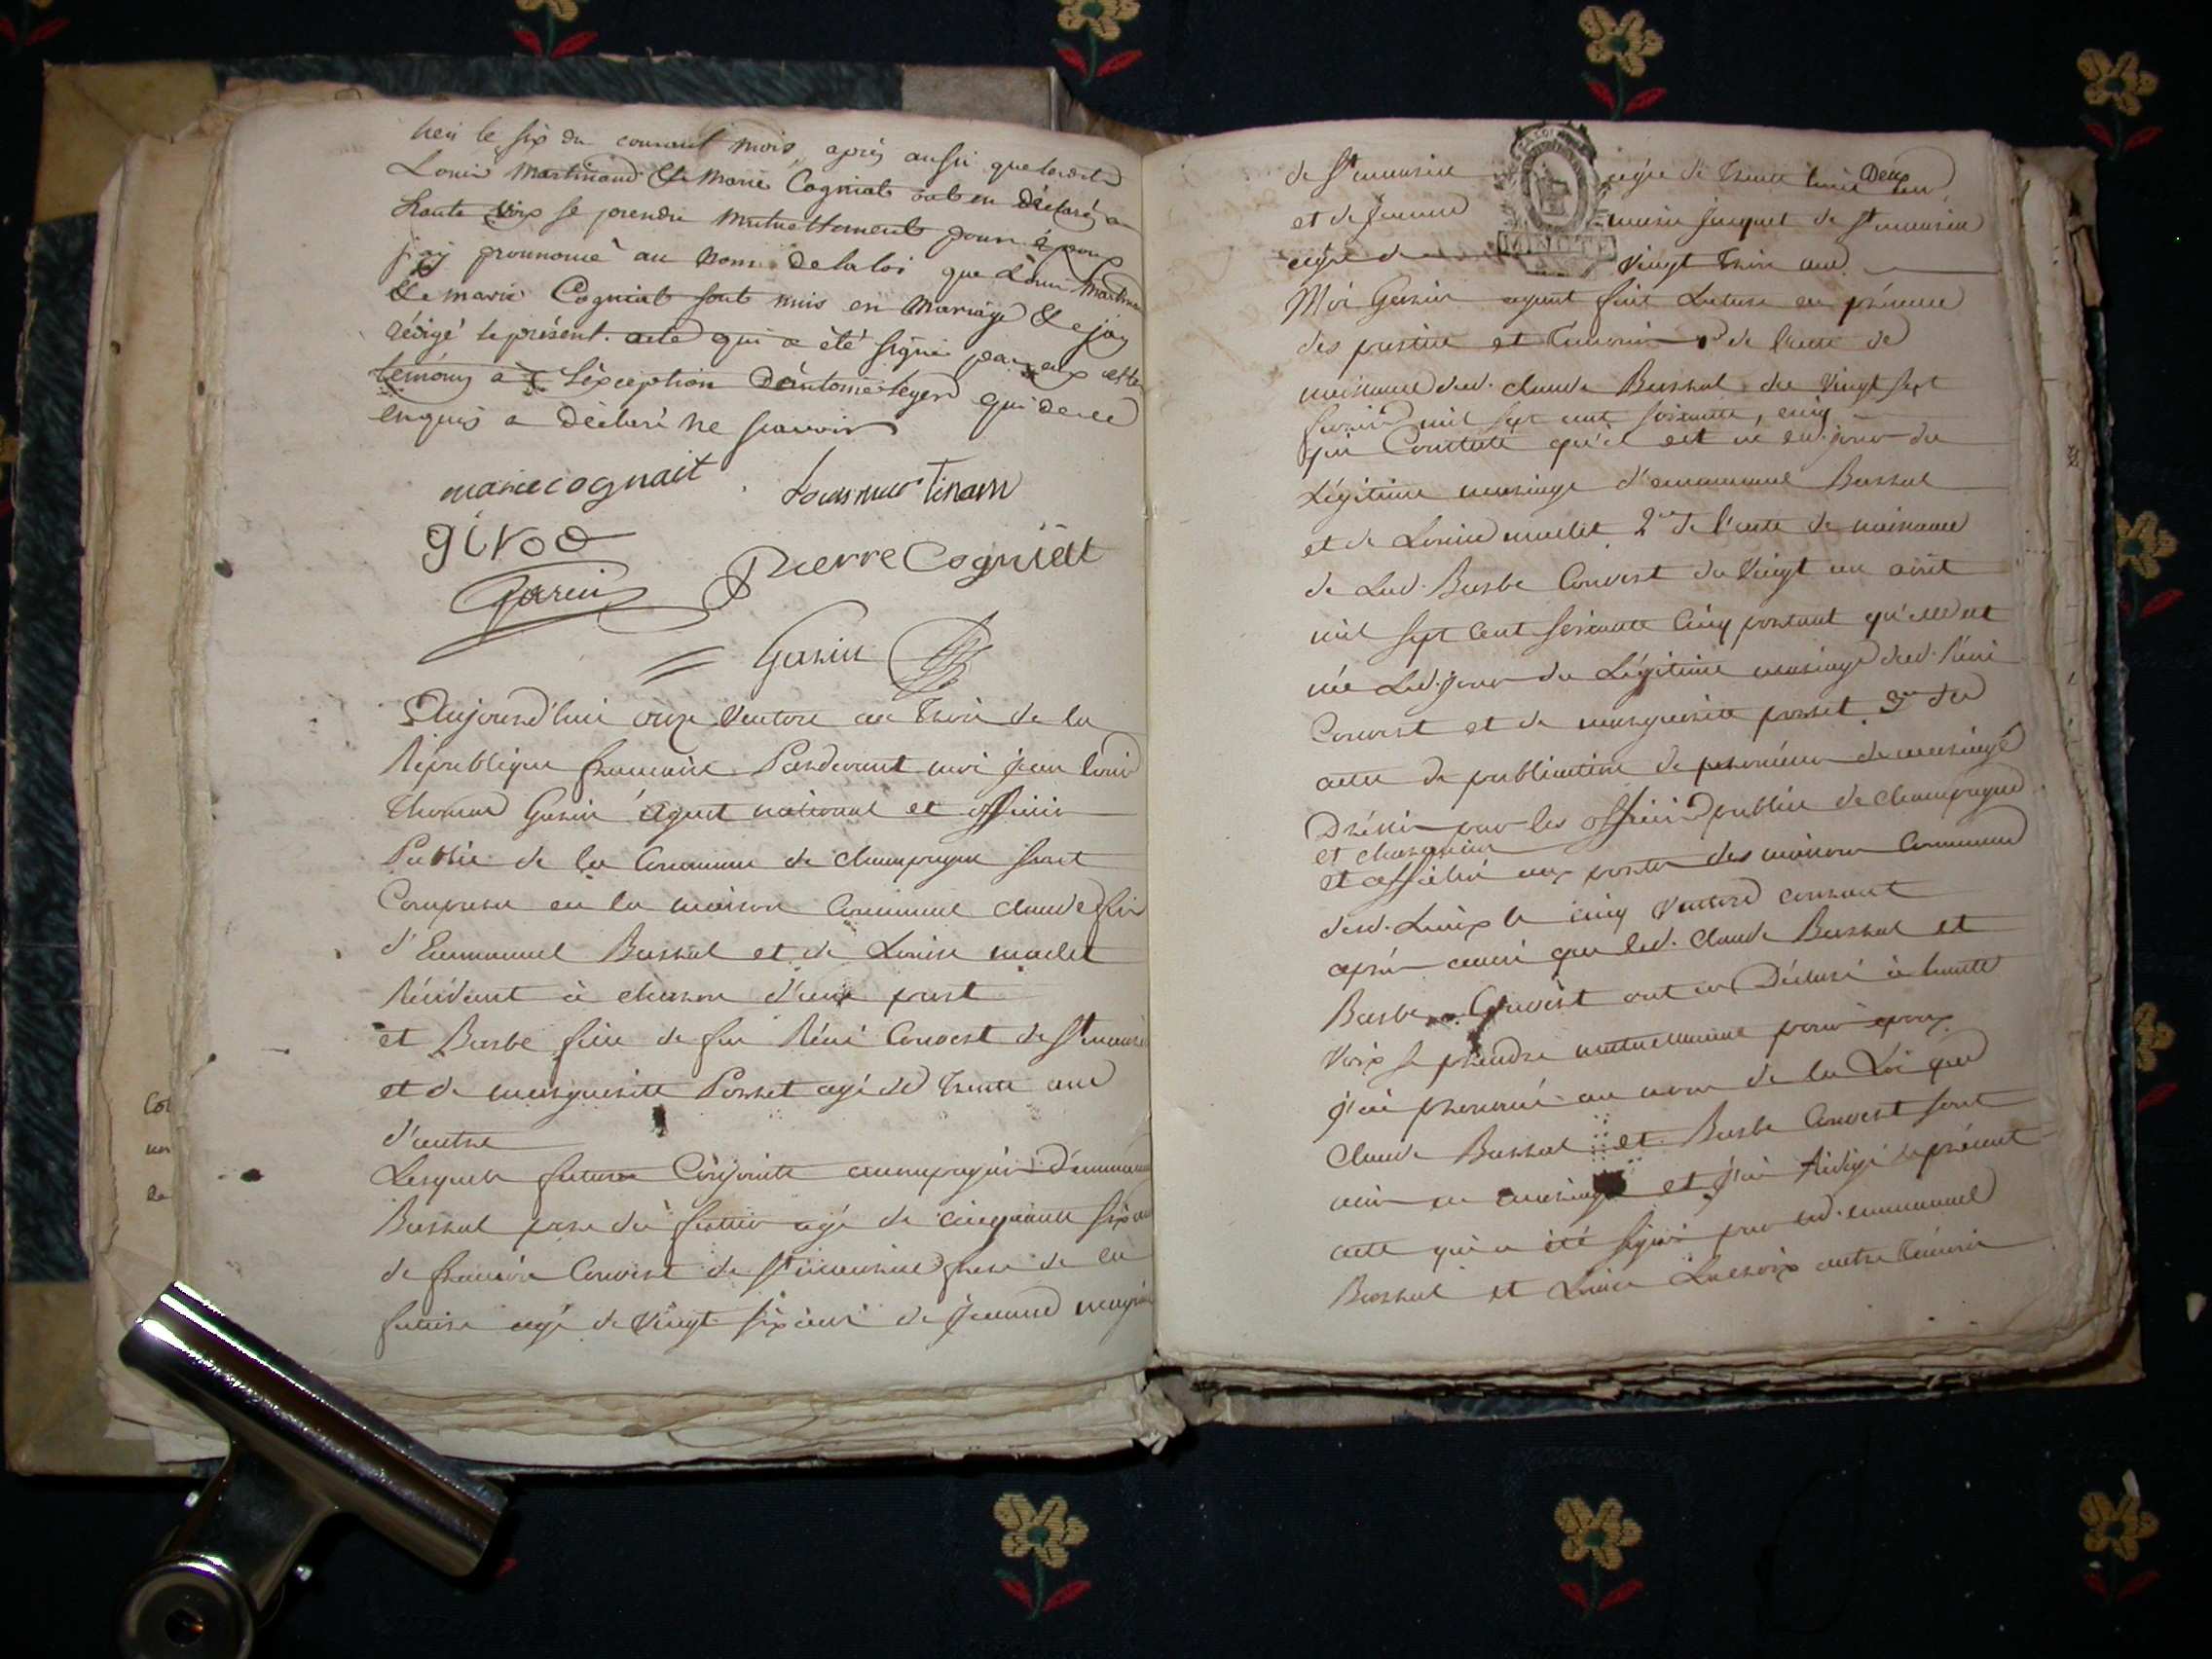 lieu le six du courant mois, après aussi que lesdits
Louis Martinand & Marie Cogniat ont en déclaré a
haute voix se prendre mutuellement pour époux
j'ay prononcé au nom de la loi que Louis Martinand
& marie Cogniat sont unis en mariage & j'ay
rédigé le présent acte qui a été signé par eux et les
témoins a l'éxception D'antoine Leger qui de ce
enquis a déclaré ne scavoir
marie cognait
Louis martinam
girod
Pierre Cogniatt
Garin
Garin
Aujourd'hui onze Ventose an Trois de la
République francaise Pardevant moi jean Louis
Thomas Garin agent national et officier
Public de la Commune de champagne sont
Comparu en la maison Commune claude fils
d'Emmanuel Bassal et de Louise mallet
Résidant à charon d'une part
et Barbe fille de feu Réné Convert de St maurice
et de marguerite Porret agé de Trente ans
d'autre
Lesquels futurs Conjoints accompagnés d'emmanuel
Bassal pere du futur agé de cinquante six ans
de francois Convert de St maurice frere de la
future agé de Vingt six ans de jeanne
de St maurice agée de Trente Deux ans
et de jeanne marie jacquet de St maurice
agée de Vingt Trois ans
Moi Garin ayant fait Lecture en présence
des parties et Temoins 1° de l'acte de
naissance dud. claude Bassal du Vingt sept
mil sept cent soixante, cinq
qui Constate qu'il est né led. jour du
Légitime mariage d'emmanuel Bassal
et de Louise mallet 2° de l'acte de naissance
de Lad. Barbe Convert du Vingt un août
mil sept Cent soixante Cinq portant qu'elle est
née Led. jour du Légitime mariage dud. Réné
Convert et de marguerite porret 3° des
actes de publication de promesses de mariage
Dressés par les officiers publics de champagne
et charancin
et affichés aux portes des maisons Communes
desd. Lieux le cinq Ventose courant
après aussi que led. claude Bassal et
Barbe Convert ont eu Déclaré à haute
Voix se prendre mutuellement pour époux
j'ai prononcé au nom de la Loi que
Claude Bassal et Barbe Convert sont
unis en mariage et j'ai Rédigé le présent
acte qui a été signé par led. emmanuel
Bassal et Lacroix autre Témoin